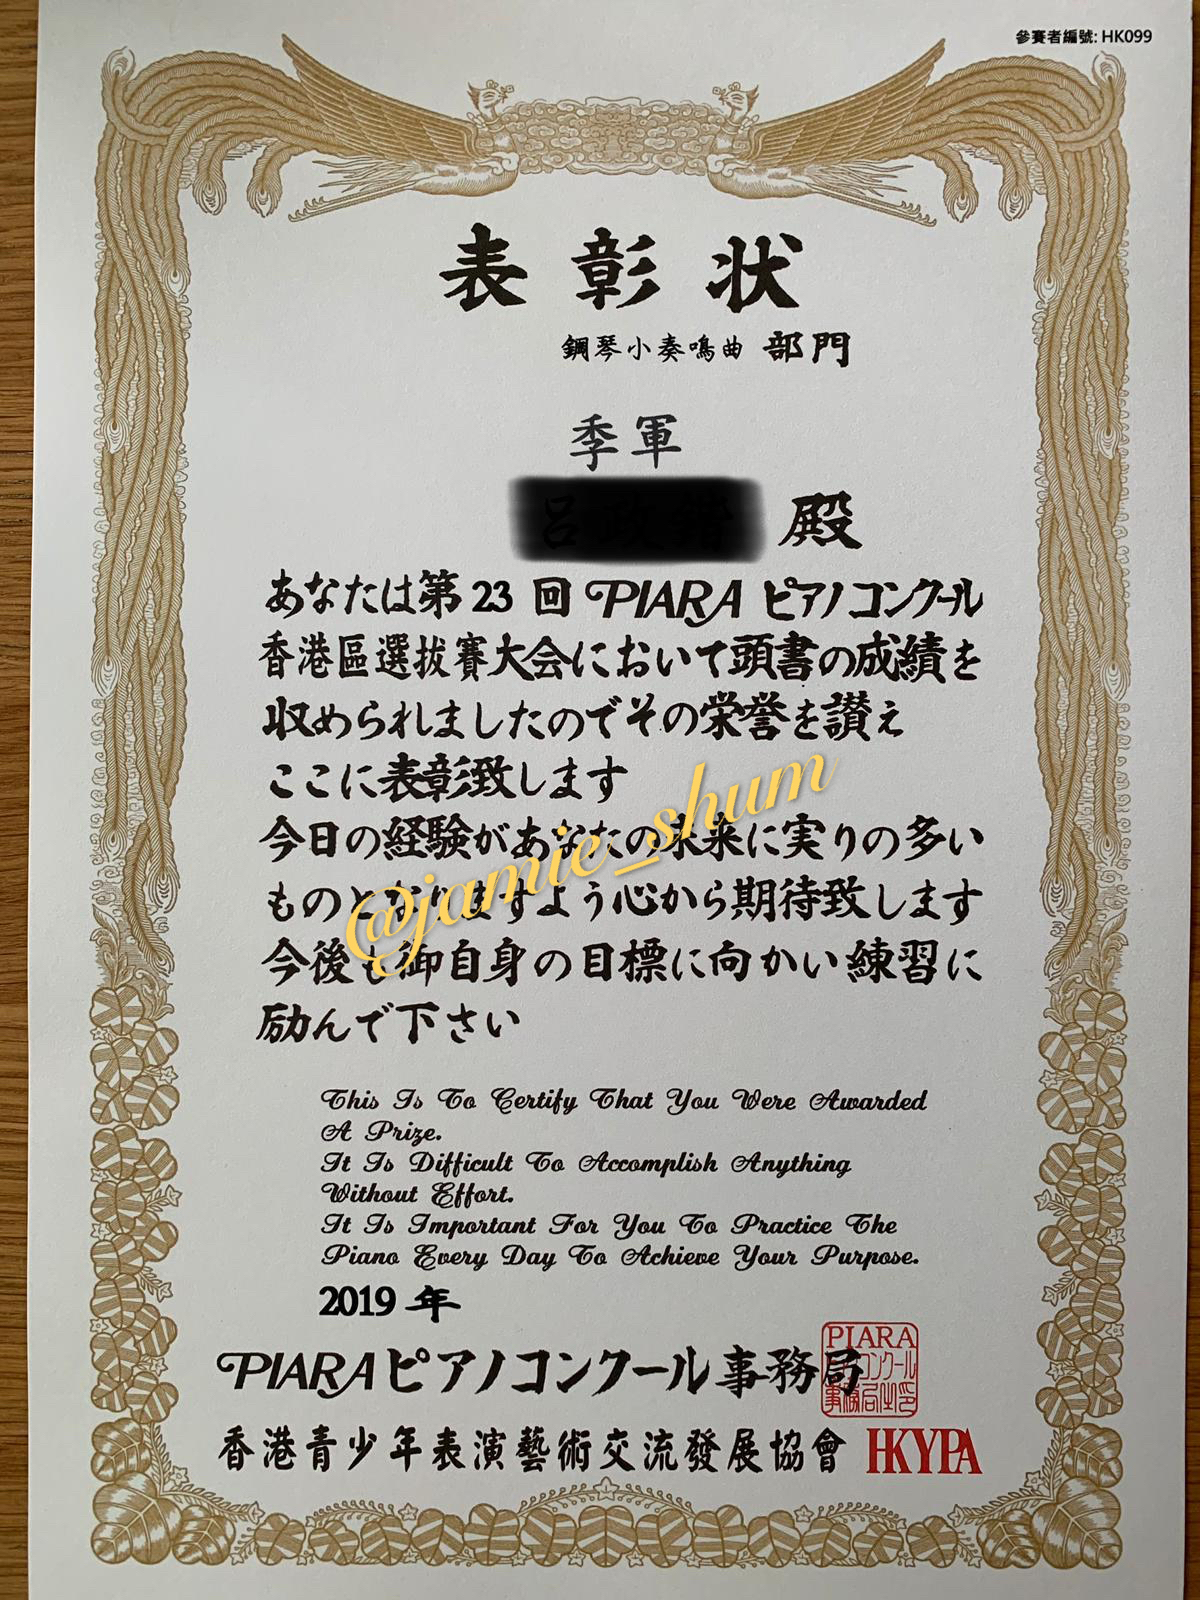 參賽者編號: HK099
表彰状
鋼琴小奏鳴曲 部門
季軍
殿
あなたは第23回 PIARA ピアノコンクール
香港區選拔賽大会において頭書の成績を
収められましたのでその栄誉を讃え
ここに表彰致します
今日の経験があなたの未来に実りの多い
ものとなりますよう心から期待致します
今後も御自身の目標に向かい練習に
励んで下さい
@jamie_shum
This Is To Certify That You Were Awarded
A Prize.
It Is Difficult To Accomplish Anything
Without Effort.
It Is Important For You To Practice The
Piano Every Day To Achieve Your Purpose.
2019 年
PIARA ピアノコンクール事務局
PIARA
香港青少年表演藝術交流發展協會 HKYPA